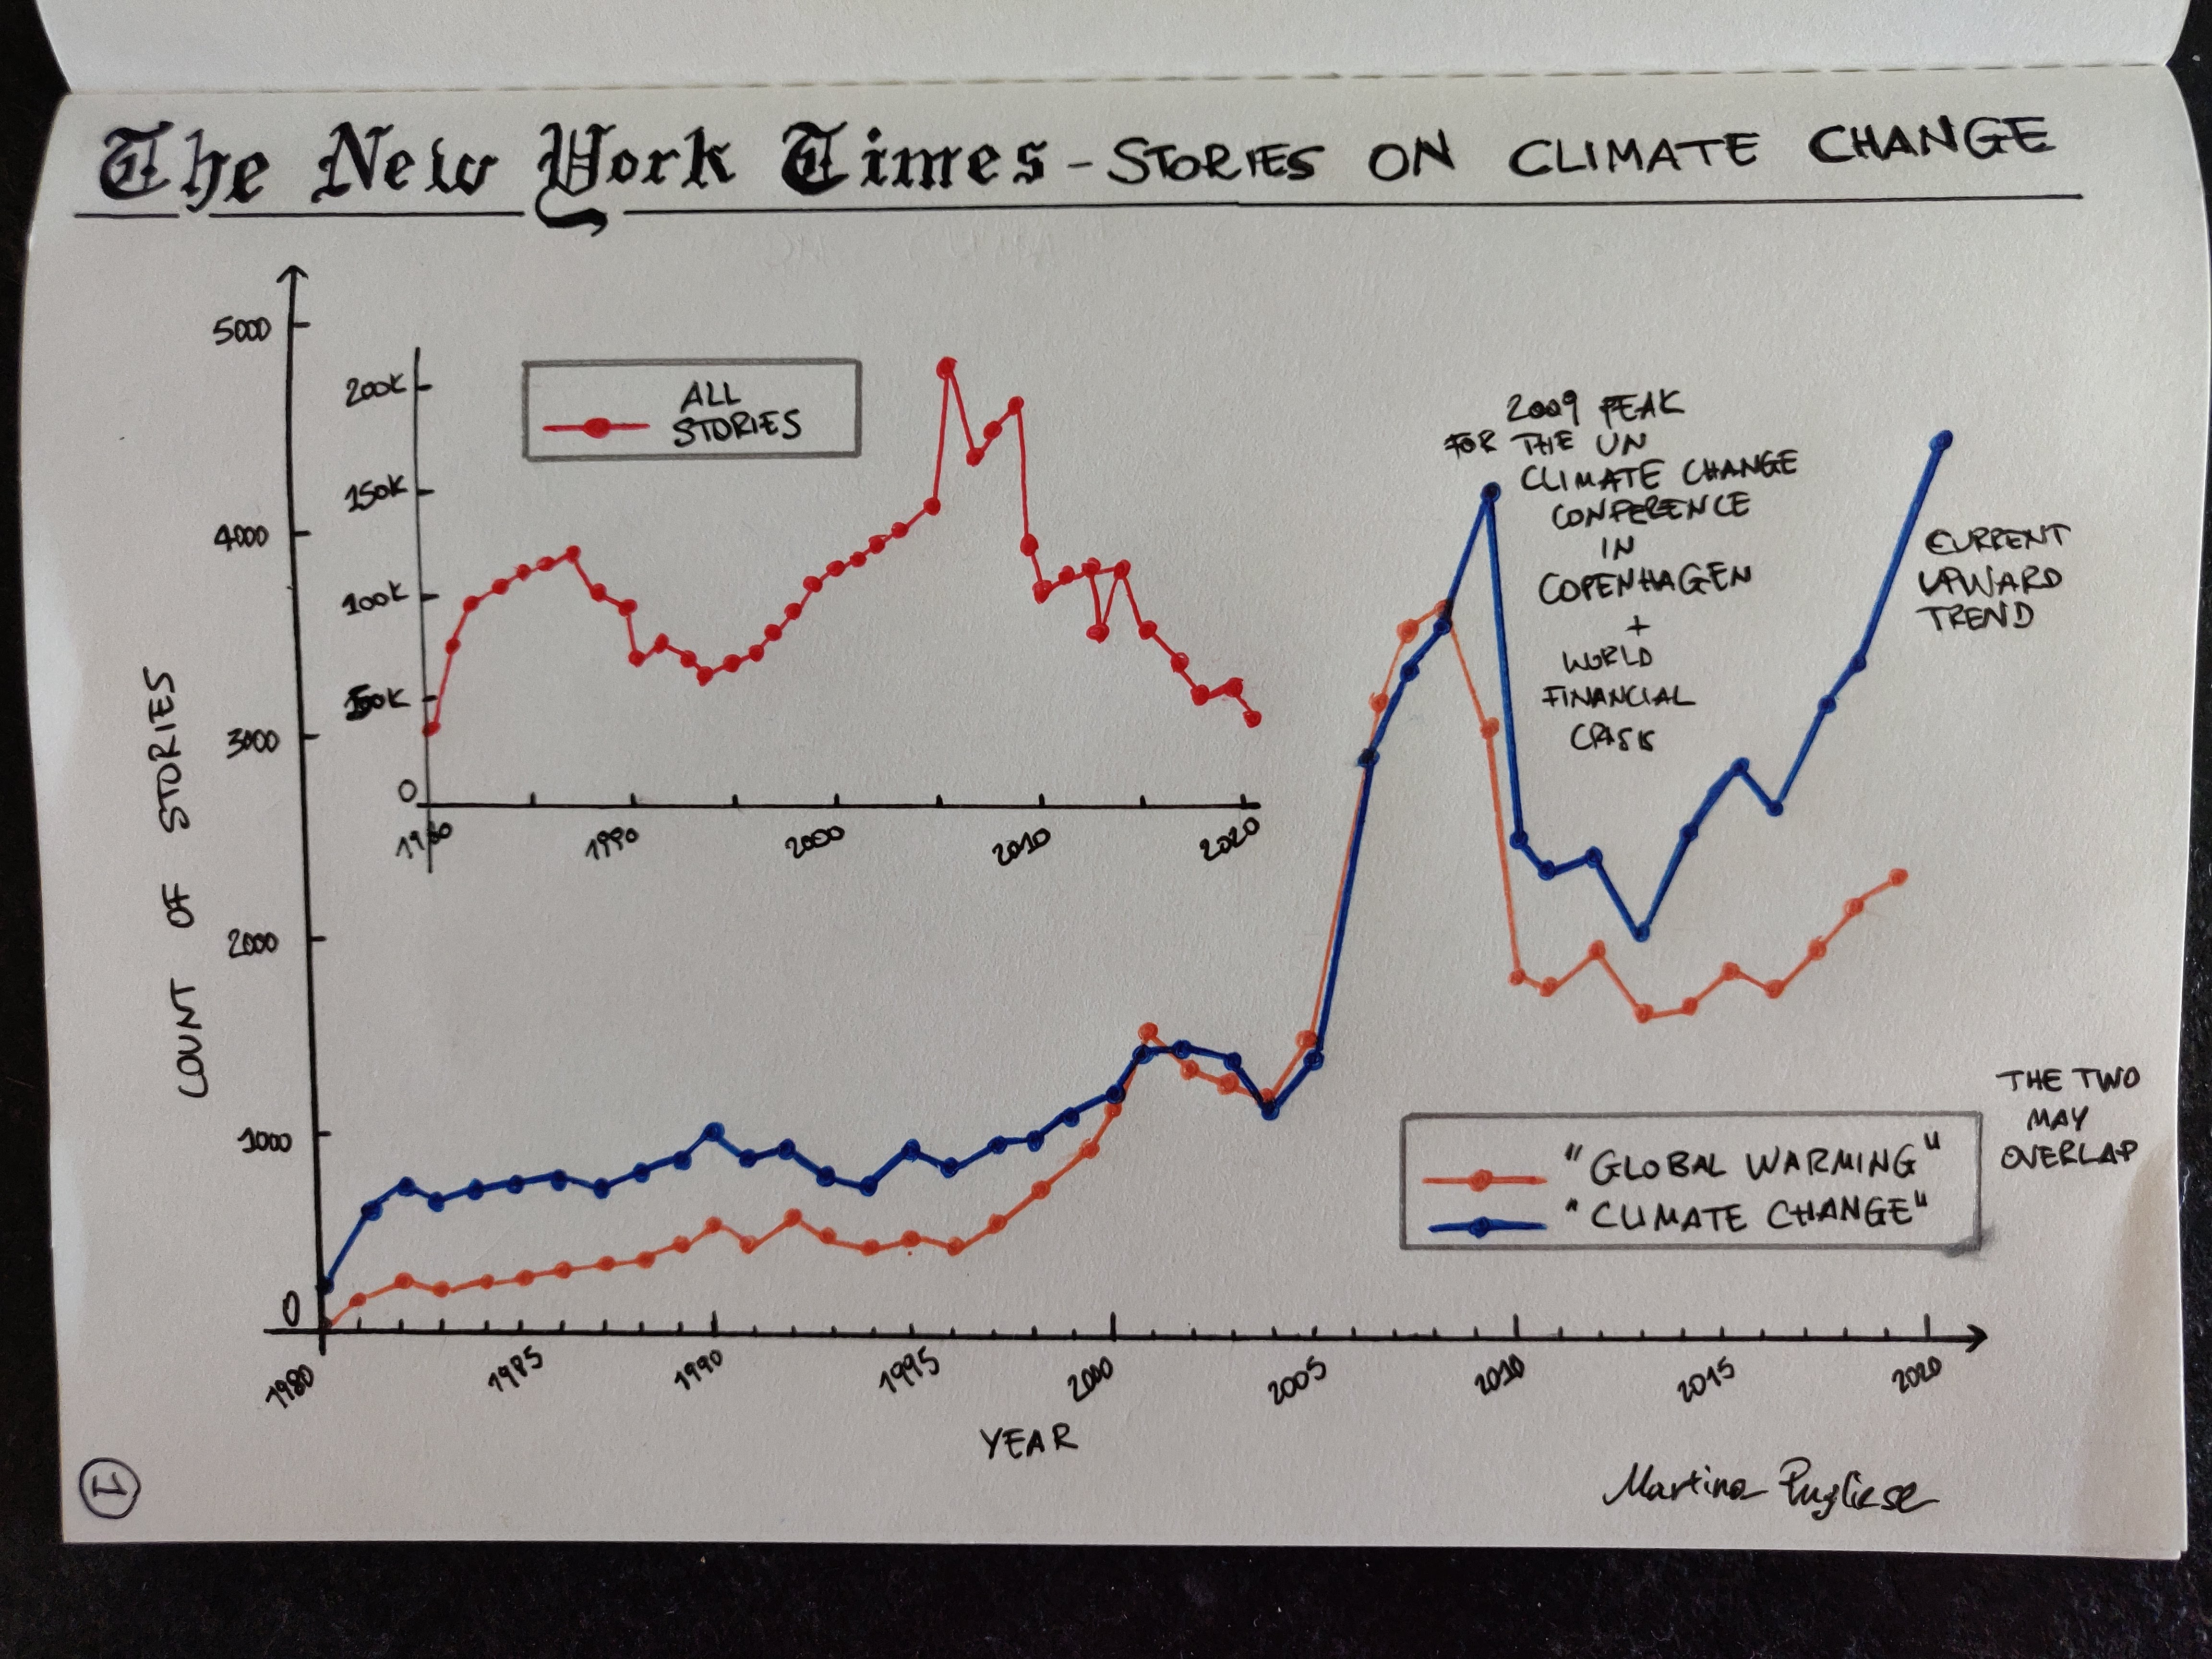 The New York Times - STORIES ON CLIMATE CHANGE
5000
4000
3000
2000
1000
0
COUNT OF STORIES
200K
150K
100K
50K
0
1980
1990
2000
2010
2020
ALL
STORIES
2009 PEAK
FOR THE UN
CLIMATE CHANGE
CONFERENCE
IN
COPENHAGEN
+
WORLD
FINANCIAL
CRISIS
CURRENT
UPWARD
TREND
"GLOBAL WARMING"
"CLIMATE CHANGE"
THE TWO
MAY
OVERLAP
1980
1985
1990
1995
2000
2005
2010
2015
2020
YEAR
Martina Pugliese